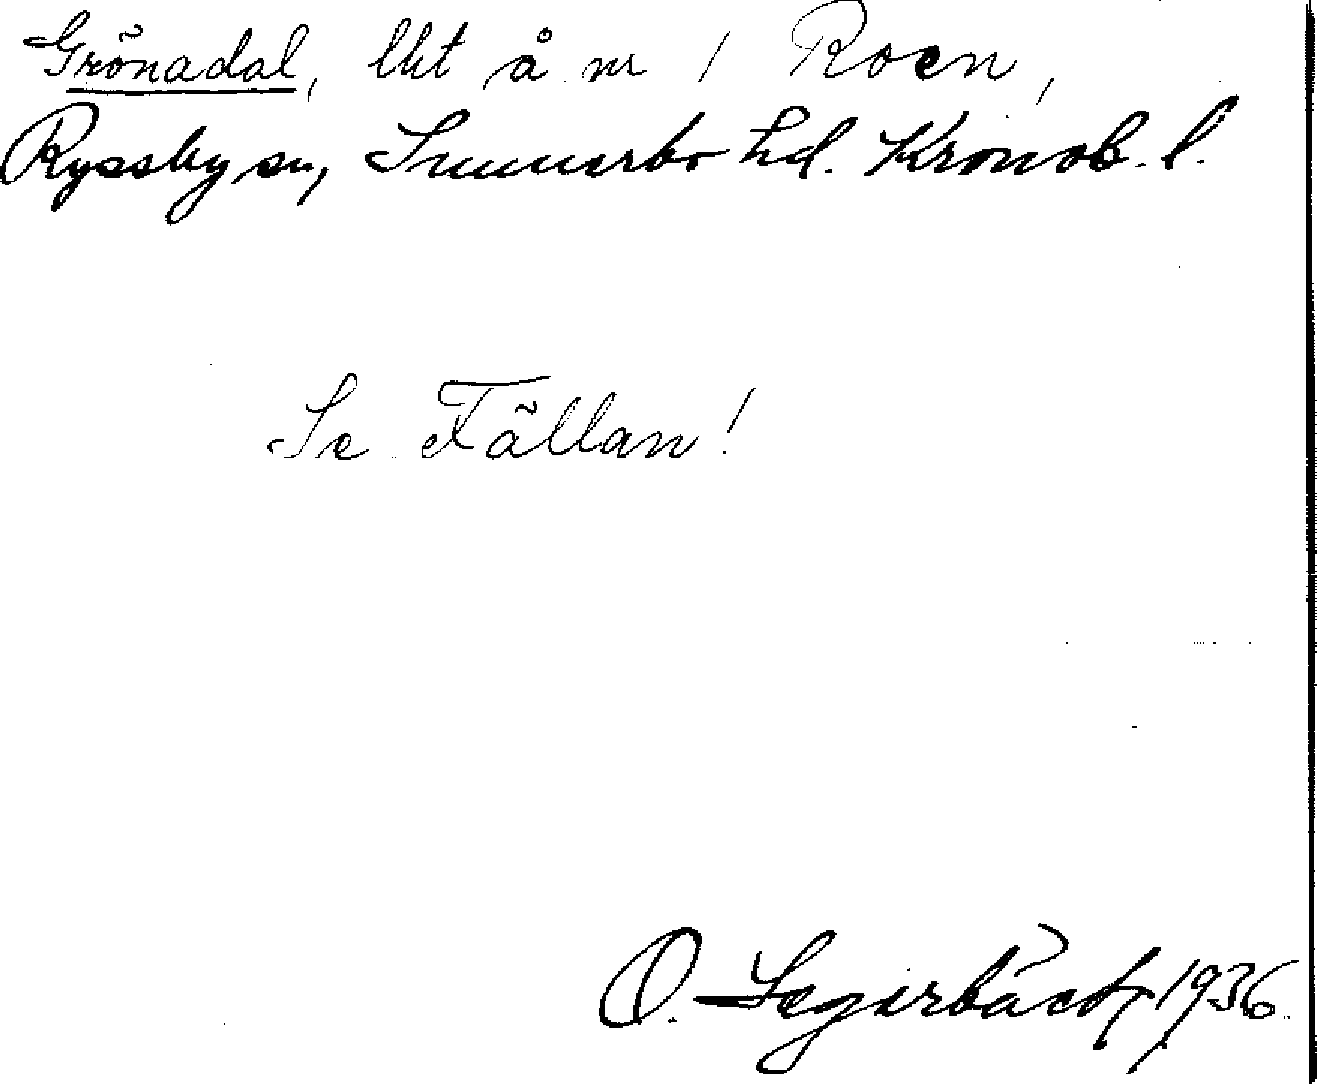 Grönadal, lht å nr 1 Roen,
Ryssby sn, Sunnerbo hd. Kronob. l.
Se Fällan!
O. Segerbäck, 1936.